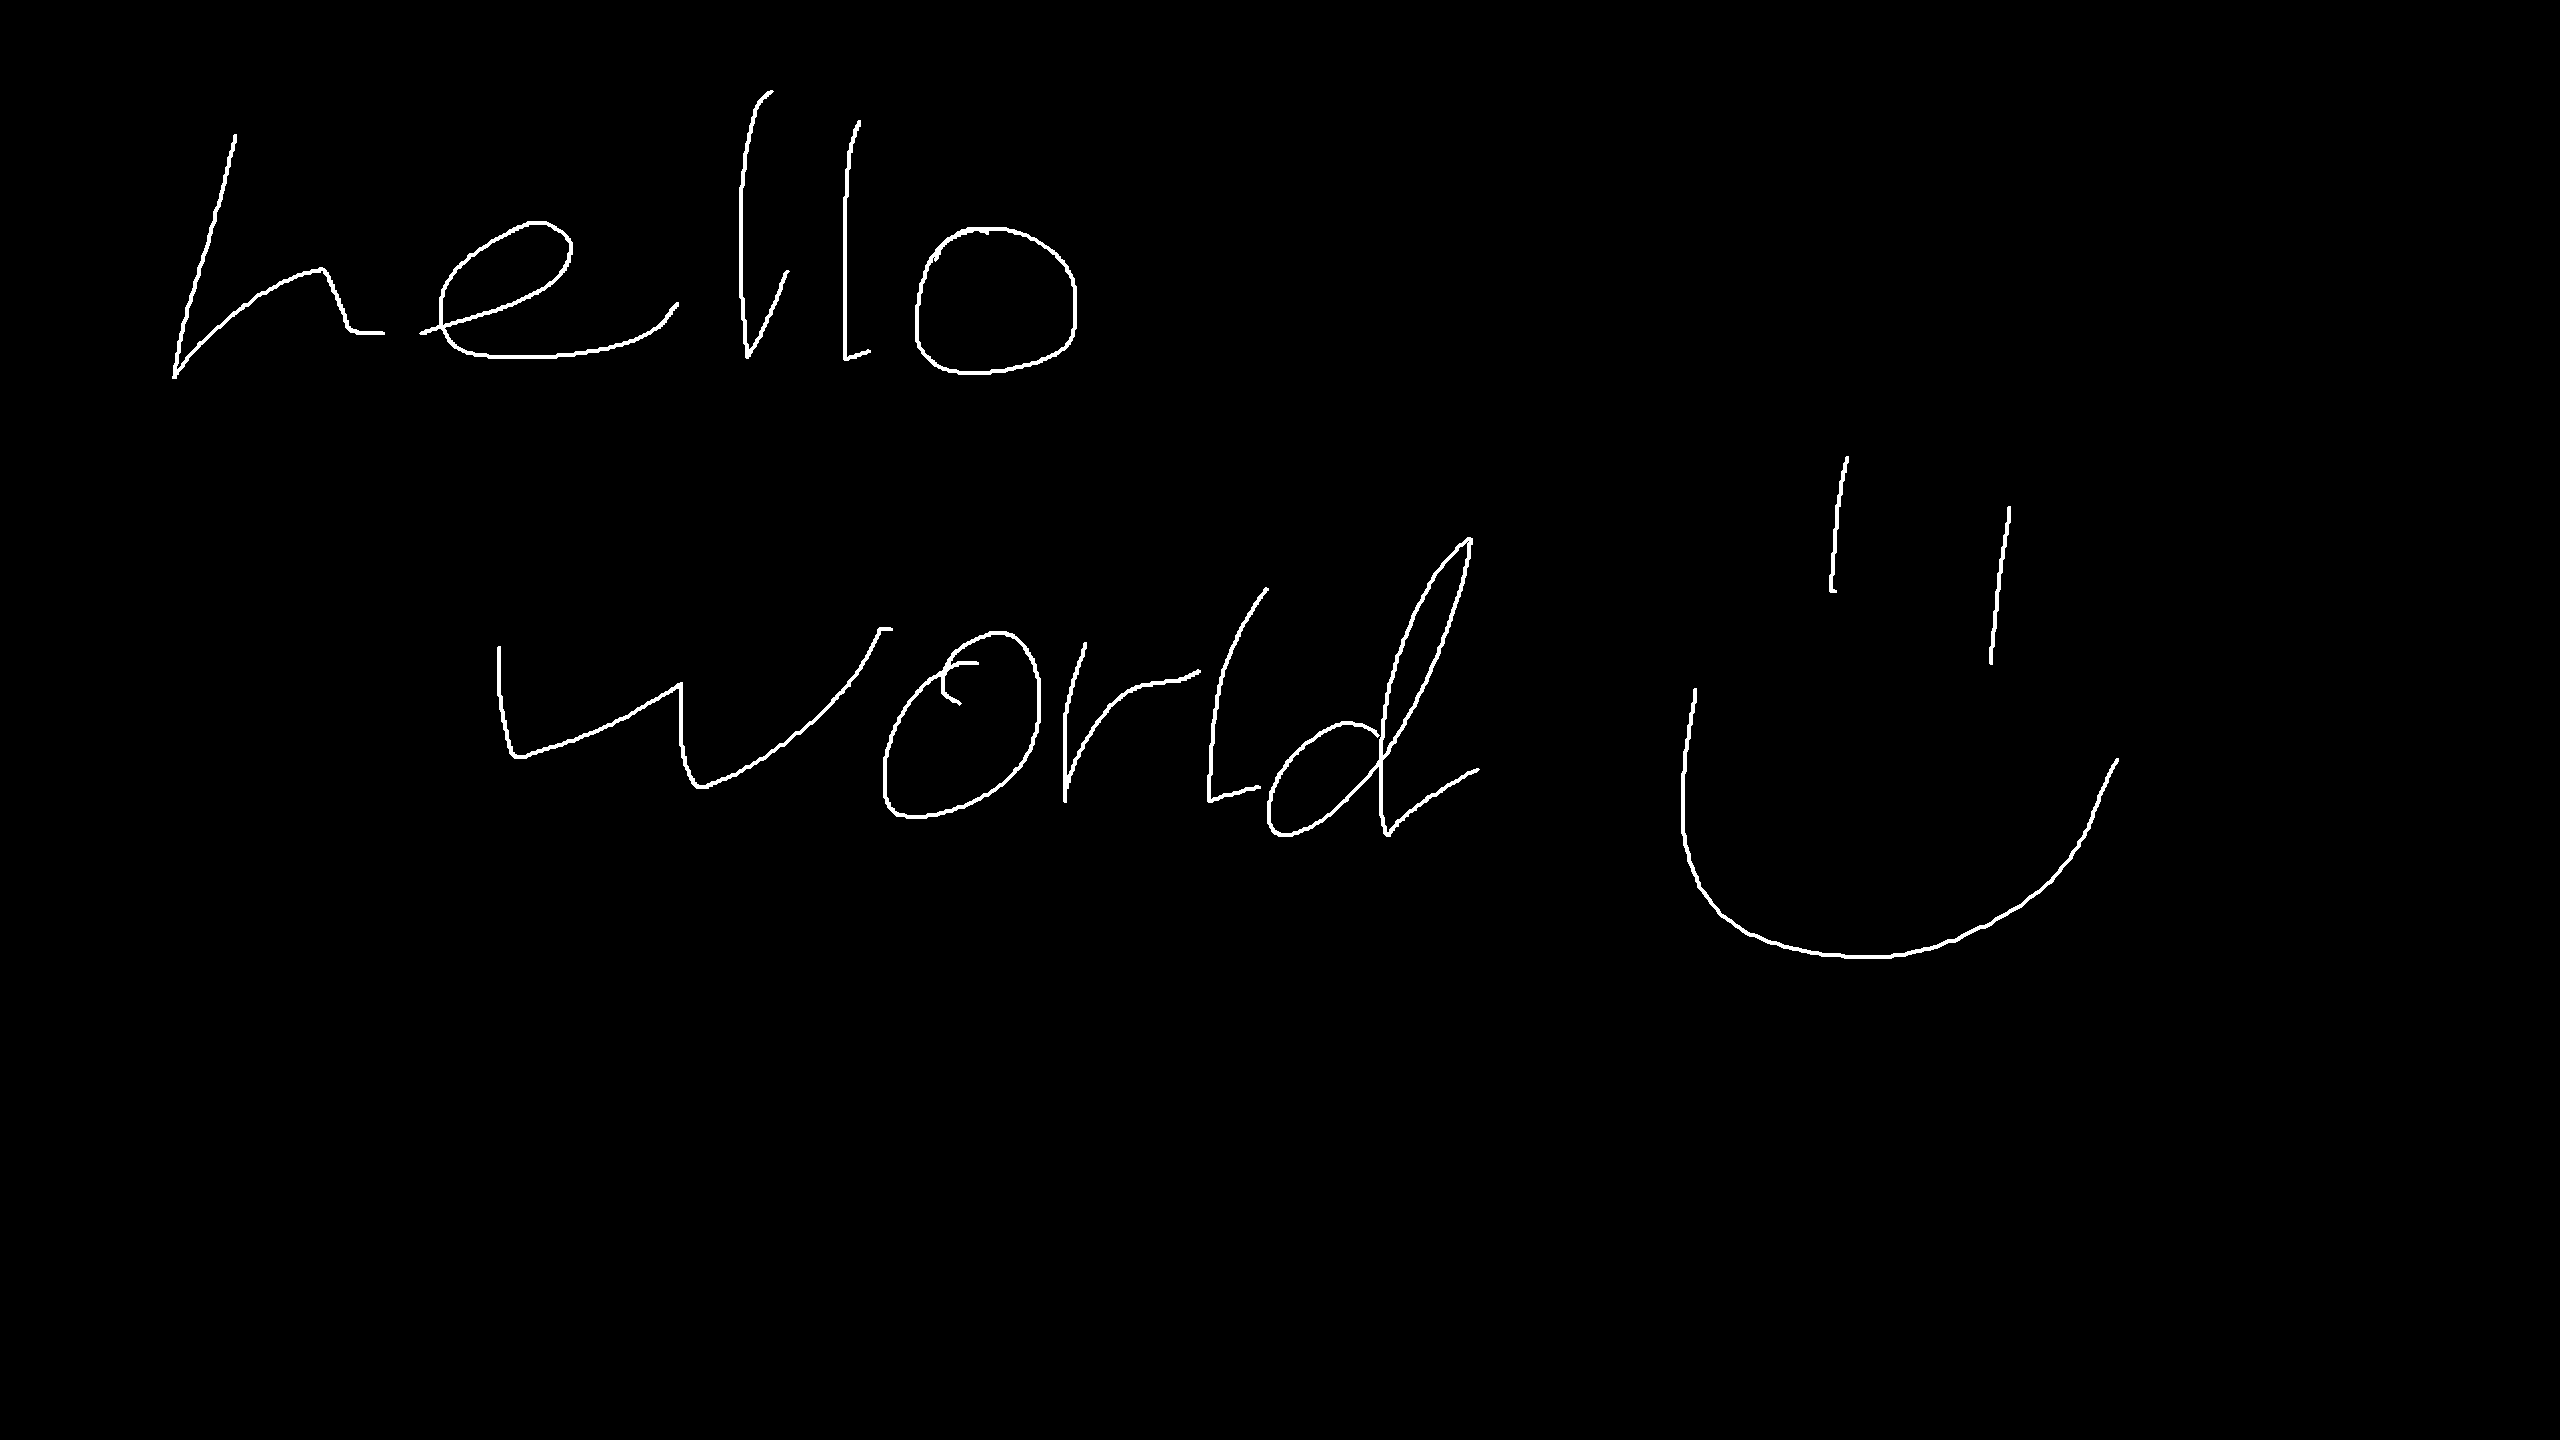 hello
world